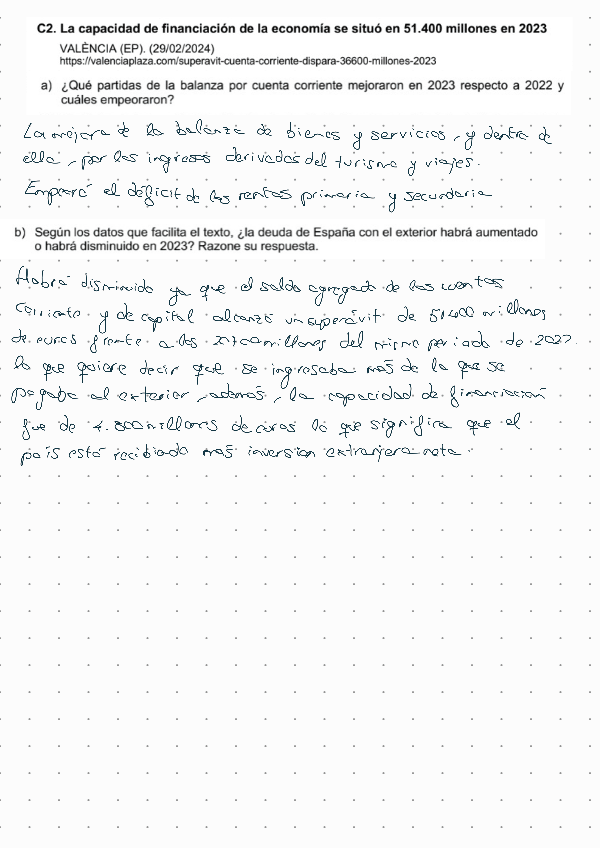 C2. La capacidad de financiación de la economía se situó en 51.400 millones en 2023
VALÈNCIA (EP). (29/02/2024)
https://valenciaplaza.com/superavit-cuenta-corriente-dispara-36600-millones-2023
a) ¿Qué partidas de la balanza por cuenta corriente mejoraron en 2023 respecto a 2022 y
cuáles empeoraron?
La mejora de la balanza de bienes y servicios, y dentro de
ella, por los ingresos derivados del turismo y viajes.
Empeoró el déficit de las rentas primaria y secundaria
b) Según los datos que facilita el texto, ¿la deuda de España con el exterior habrá aumentado
o habrá disminuido en 2023? Razone su respuesta.
Habrá disminuido ya que el saldo agregado de las cuentas
corriente y de capital alcanzó un superávit de 51400 millones
de euros frente a los millones del mismo periodo de 2022
lo que quiere decir que se ingresaba más de lo que se
pagaba al exterior, además, la capacidad de financiación
fue de 4.800 millones de euros lo que significa que el
país está recibiendo más inversion extranjera neta.